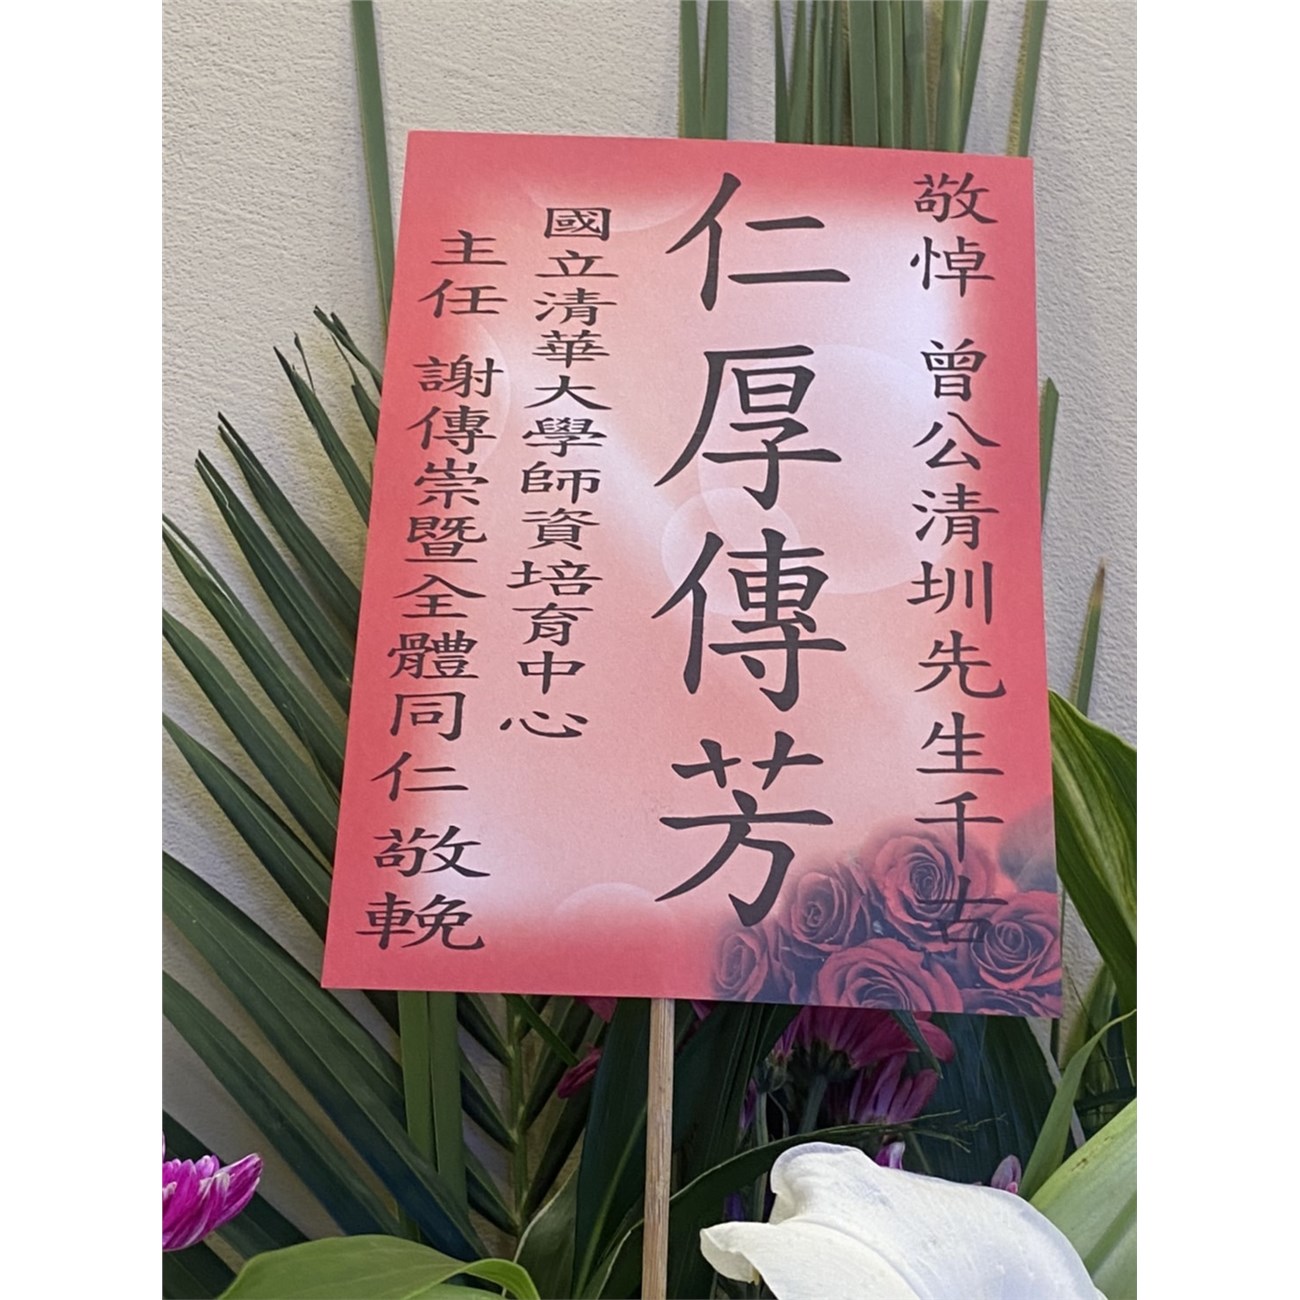 敬悼 曾公清圳先生千古
仁厚傳芳
國立清華大學師資培育中心
主任 謝傳崇暨全體同仁 敬輓